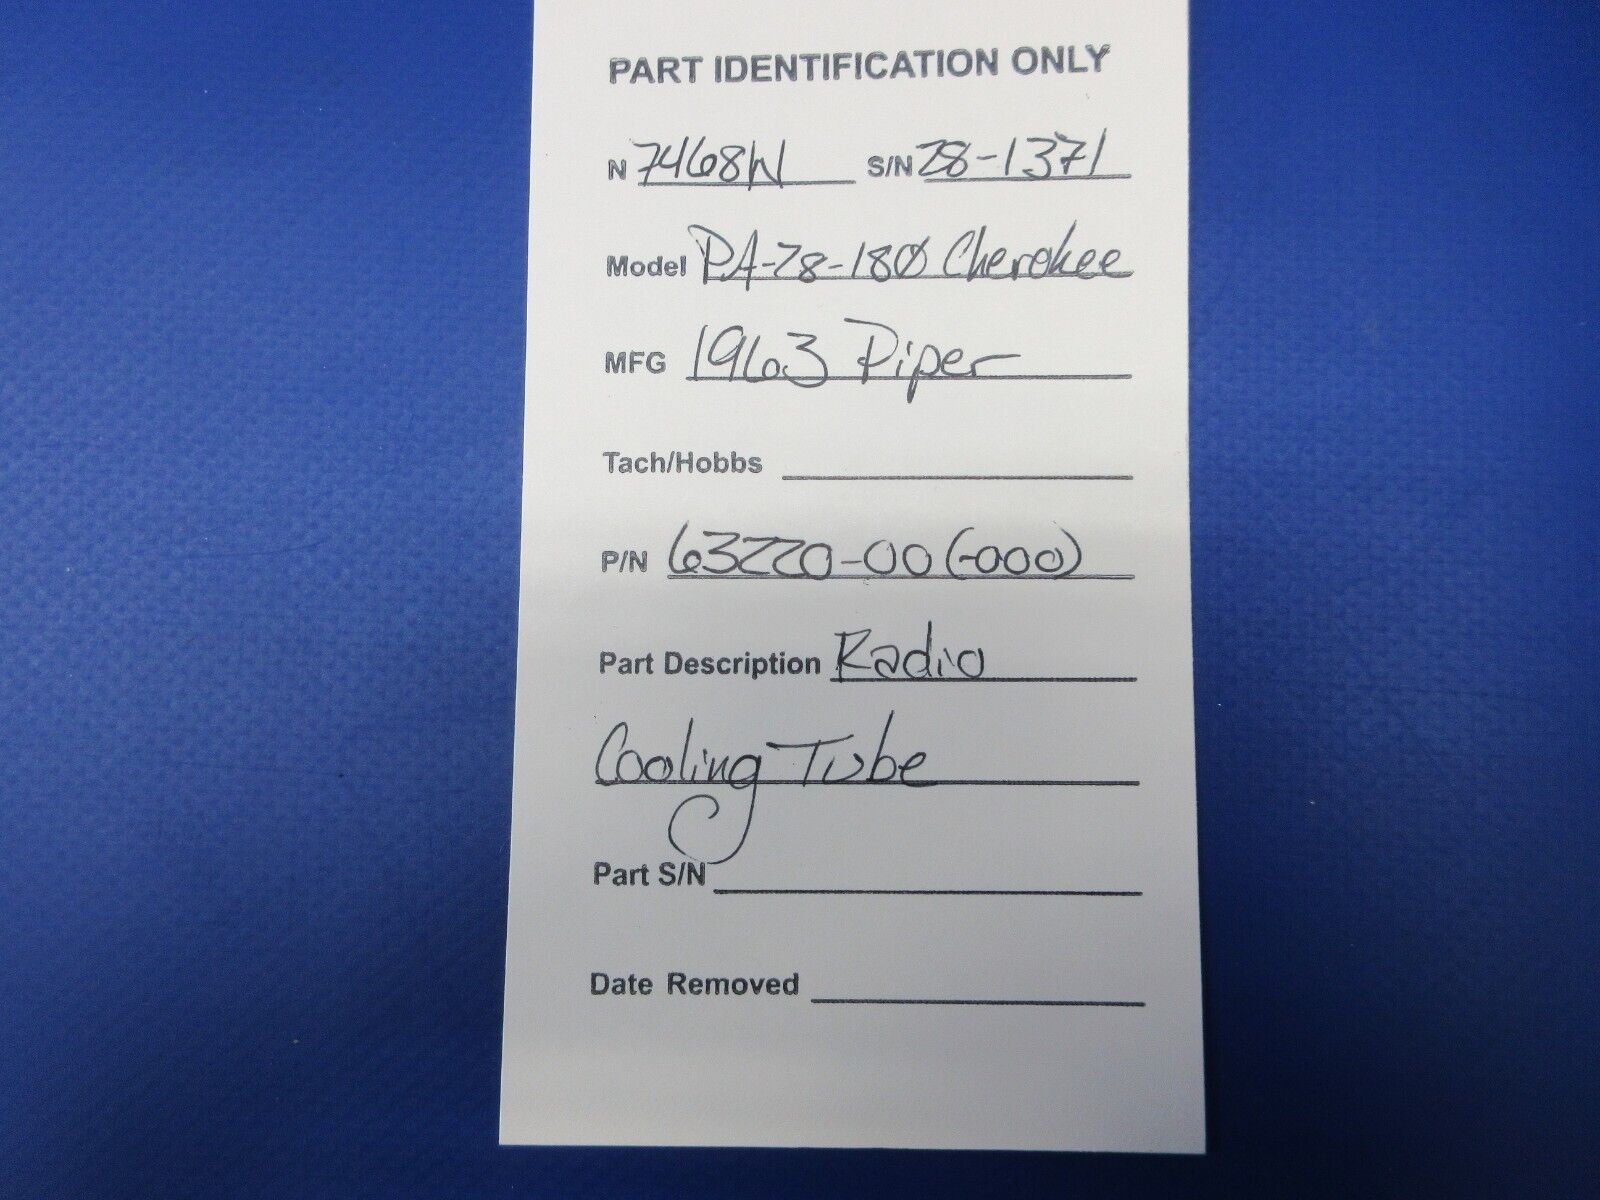 PART IDENTIFICATION ONLY
N 7468W S/N 28-1371
Model PA-28-180 Cherokee
MFG 1963 Piper
Tach/Hobbs
P/N 63220-00 (-000)
Part Description Radio
Cooling Tube
Part S/N
Date Removed